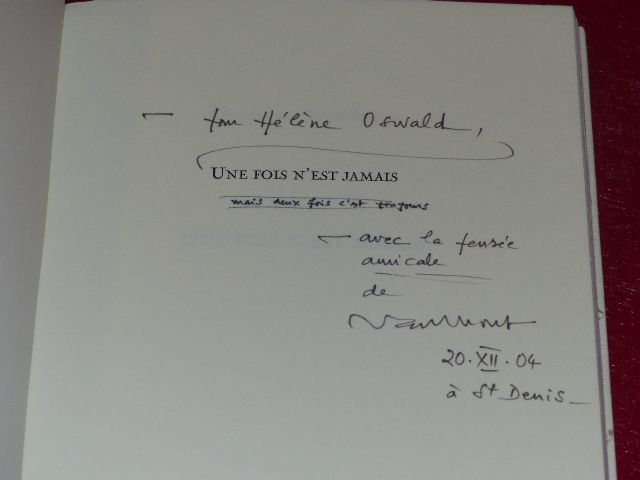 — pour Hélène Oswald,
UNE FOIS N'EST JAMAIS
mais deux fois c'est toujours
— avec la pensée
amicale
de
20.XII.04
à St Denis_